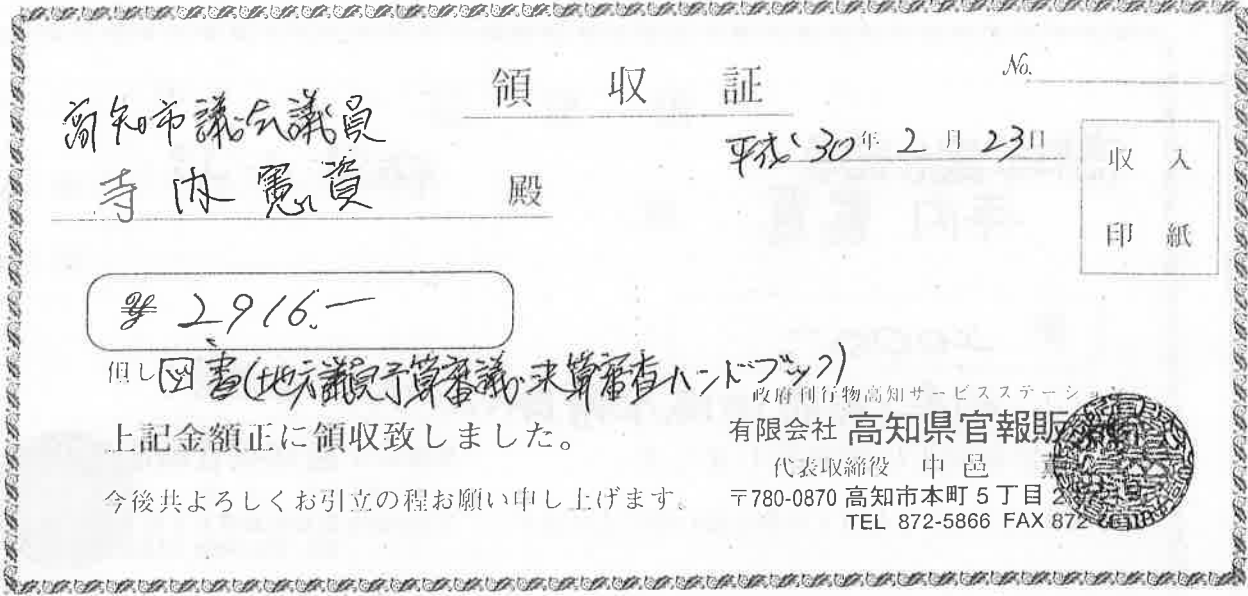 領収証
No.
高知市議会議員
寺内憲資 殿
平成30年2月23日
収入
印紙
¥2916.-
但し 図書(地方議員予算審議・決算審査ハンドブック)
上記金額正に領収致しました。
今後共よろしくお引立の程お願い申し上げます。
政府刊行物高知サービスステーション
有限会社 高知県官報販
代表取締役 中邑
〒780-0870 高知市本町5丁目
TEL 872-5866 FAX 872